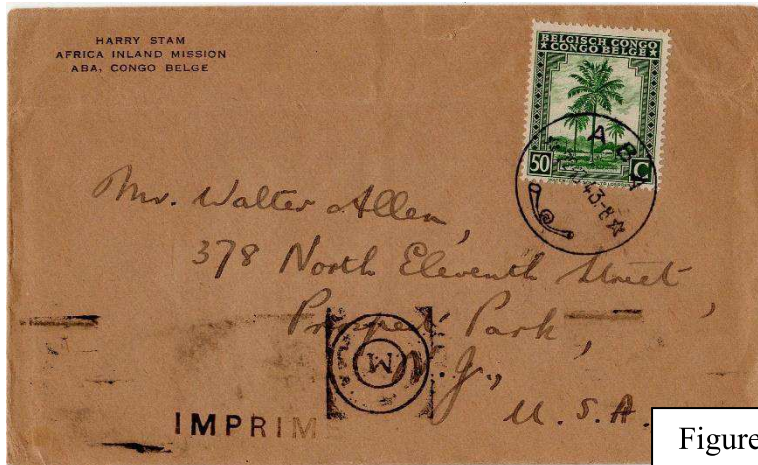 HARRY STAM
AFRICA INLAND MISSION
ABA, CONGO BELGE
BELGISCH CONGO
CONGO BELGE
50 C
ABA
43-8
Mr. Walter Allen,
378 North Eleventh Street,
Prospect Park,
N.J.,
U.S.A.
M
IMPRIM
Figure